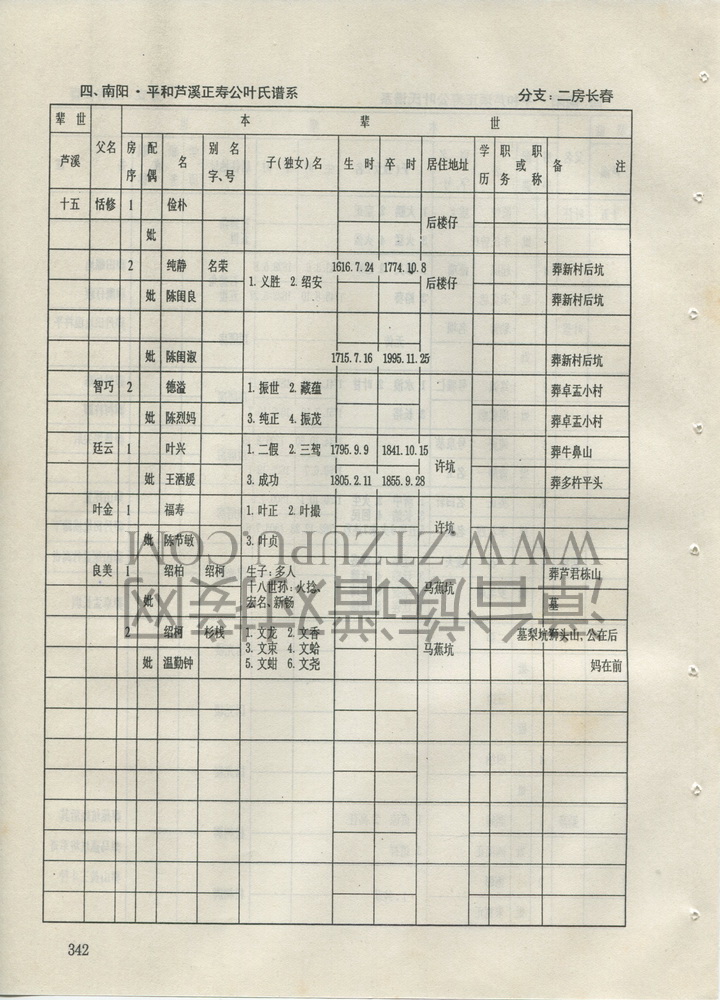 四、南阳·平和芦溪正寿公叶氏谱系 分支：二房长春
辈世 本辈世
芦溪 父名 房序 配偶 名 别名字、号 子(独女)名 生时 卒时 居住地址 学历 职务或职称 备注
十五 恬修 1 俭朴 后楼仔
妣
2 纯静 名荣 1.义胜 2.绍安 1616.7.24 1774.10.8 后楼仔 葬新村后坑
妣 陈闺良 葬新村后坑
妣 陈闺淑 1715.7.16 1995.11.25 葬新村后坑
智巧 2 德溢 1.振世 2.藏蕴 葬卓盂小村
妣 陈烈妈 3.纯正 4.振茂 葬卓盂小村
廷云 1 叶兴 1.二假 2.三驾 1795.9.9 1841.10.15 许坑 葬牛鼻山
妣 王洒媛 3.成功 1805.2.11 1855.9.28 葬多柞平头
叶金 1 福寿 1.叶正 2.叶撮 许坑
妣 陈节敏 3.叶贞
良美 1 绍柏 绍柯 生子:多人 马蕉坑 葬芦君栋山
十八世孙:火捻、
妣 宏名、新畅 墓
2 绍柯 杉栈 1.文龙 2.文香 马蕉坑 墓梨坑狮头山,公在后
3.文束 4.文蛤
妣 温勤钟 5.文蚶 6.文尧 妈在前
342
漳台族谱对接网
WWW.ZTZUPU.COM